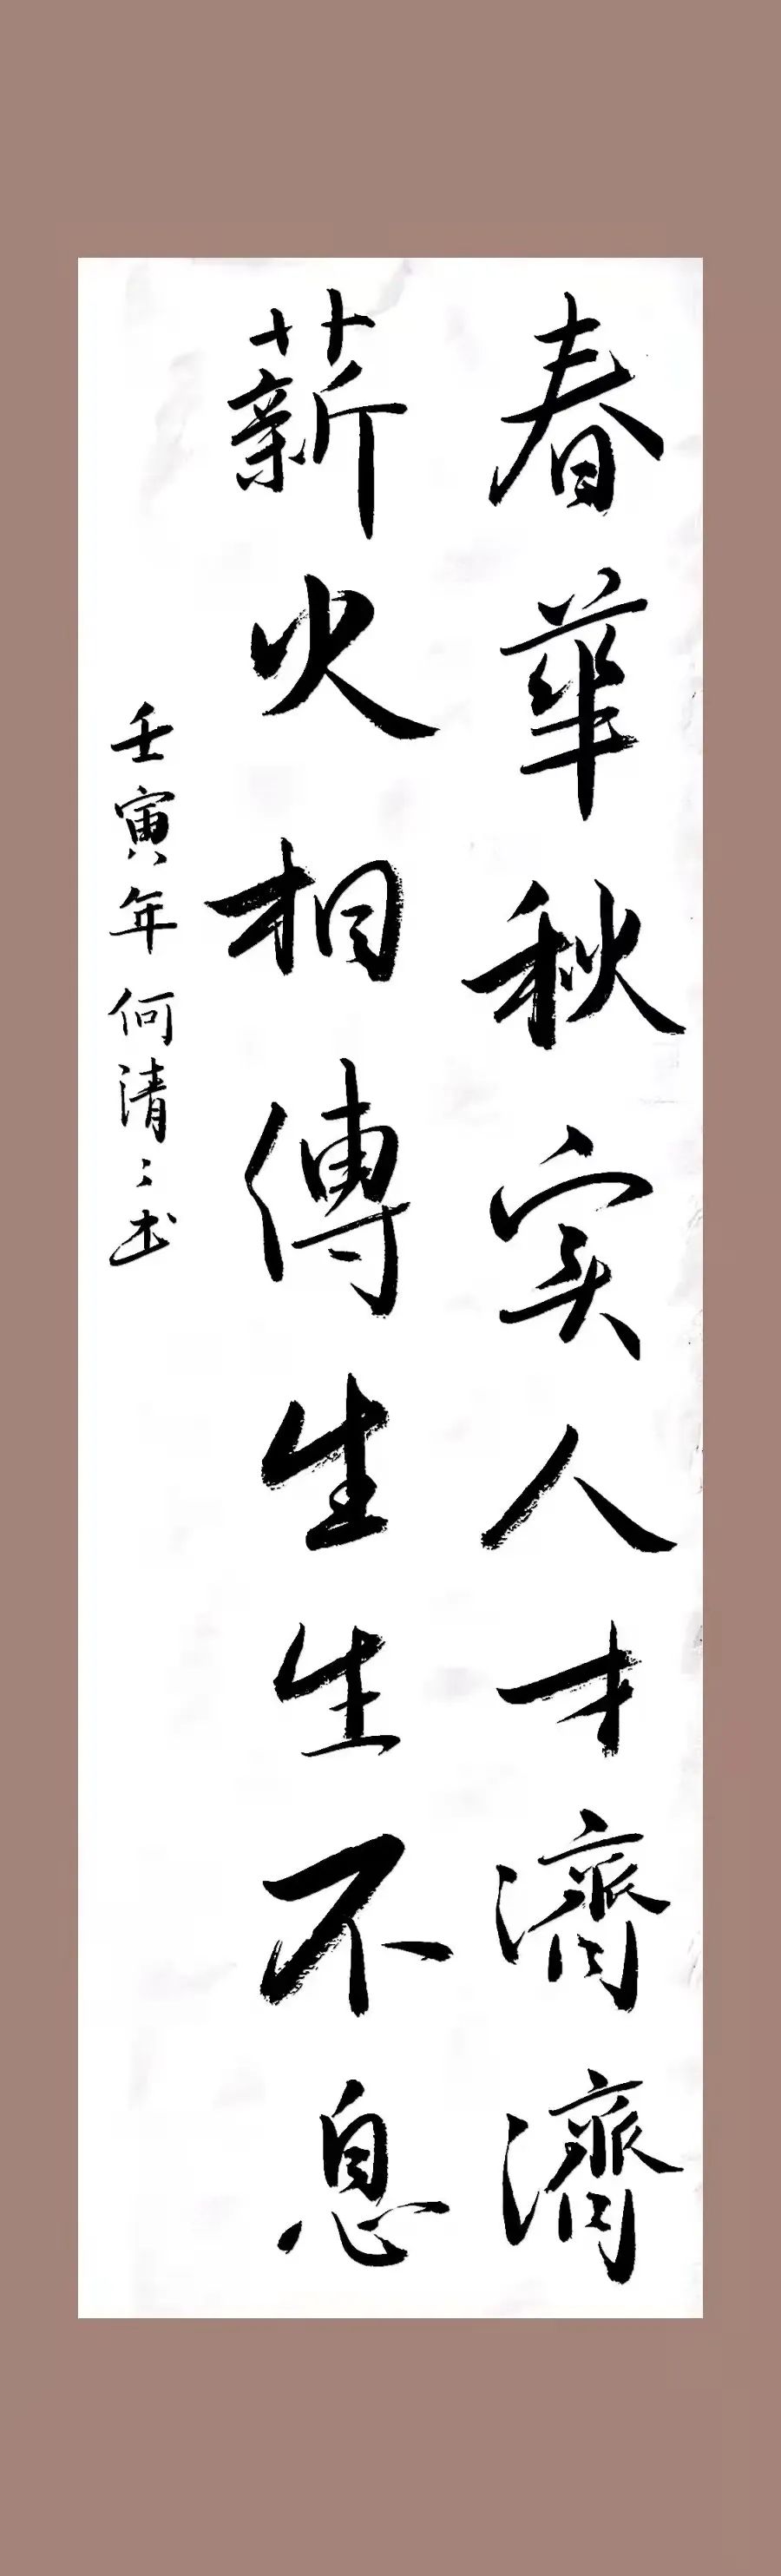 春華秋实人才濟濟
薪火相傳生生不息
壬寅年何清〻书